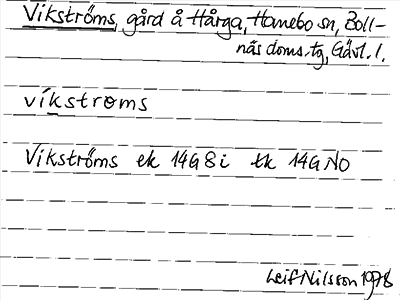 Vikströms, gård å Hårga, Hanebo sn, Boll-
näs doms.tg, Gävl. l.
víkstroms
Vikströms ek 14G 8i tk 14G NO
Leif Nilsson 1978